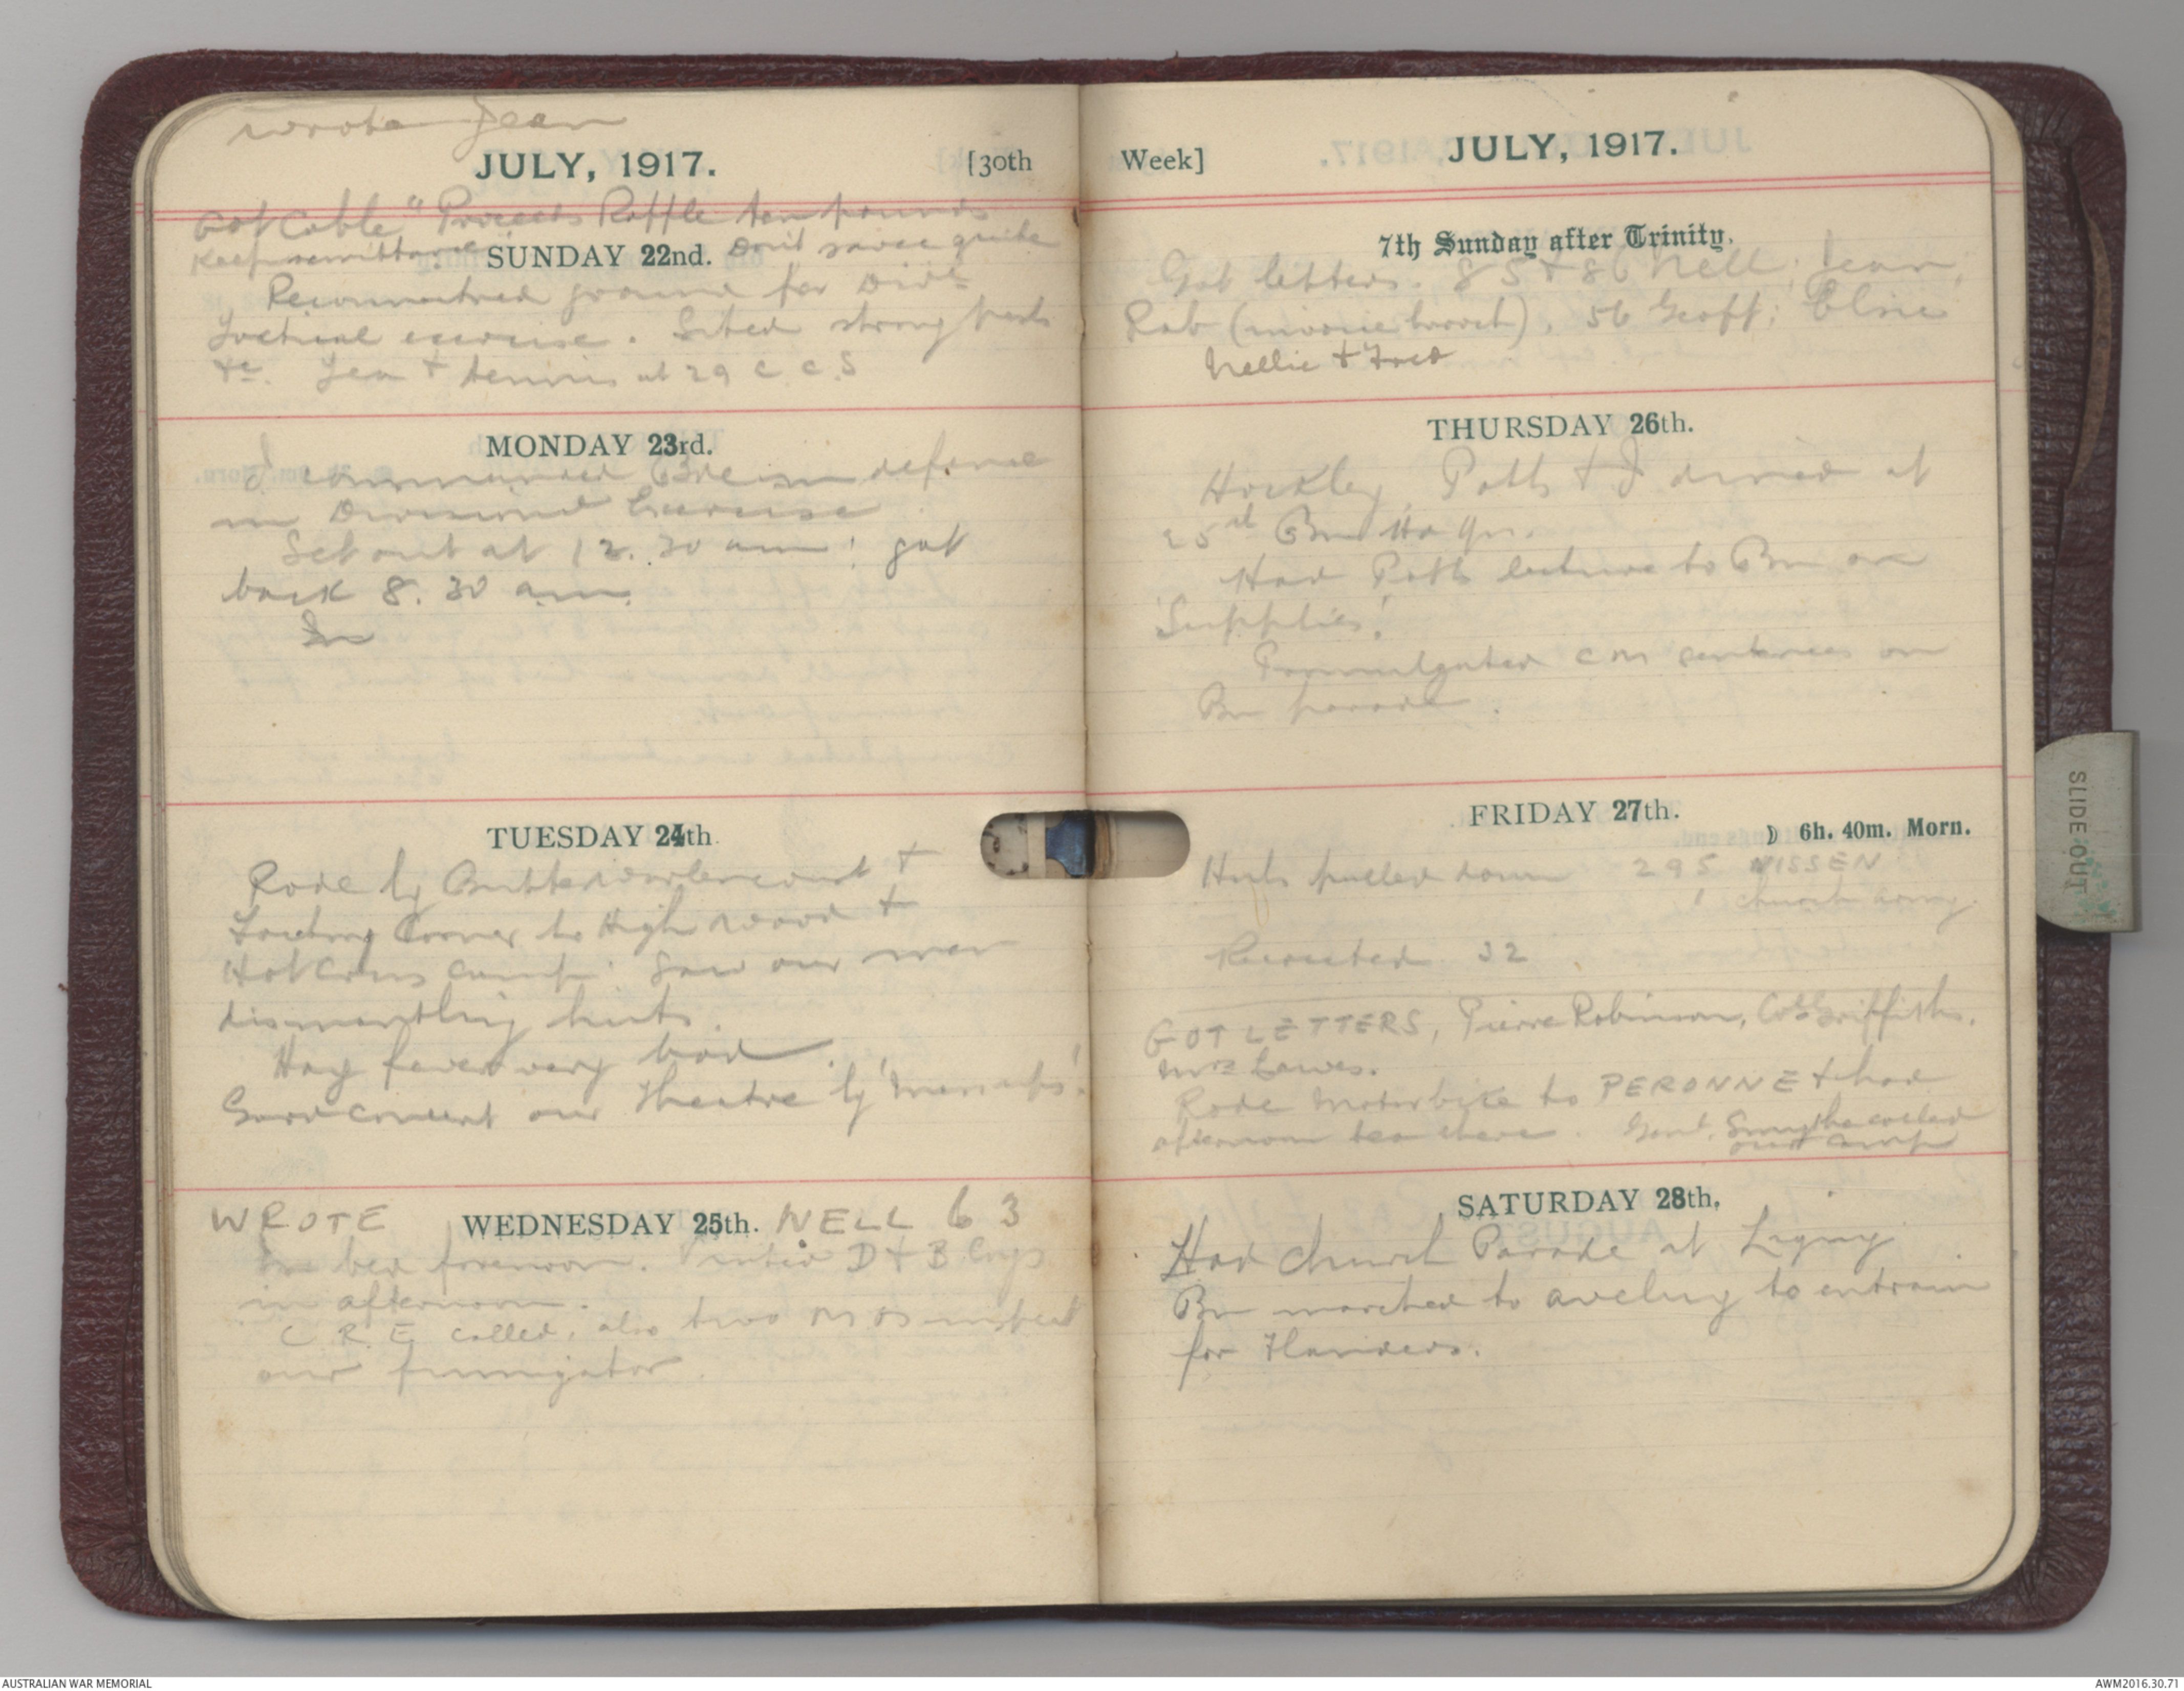 wrote Jean
JULY, 1917. [30th
Got Cable "Proceeds Raffle ten pounds
Keep remittance" SUNDAY 22nd. Don't savee quite
Reconnoitred ground for Divl
Tactical exercise. Sited strong posts
&c. Tea & tennis at 29 C.C.S
MONDAY 23rd.
I commanded Bde in defence
in Divisional Exercise
Set out at 12.30 am; got
back 8.30 am.
TUESDAY 24th.
Rode by Butte &
Factory Corner to High Wood &
Hotcross camp. Saw our men
dismantling huts.
Hay fever very bad.
Good concert our Theatre by
WROTE WEDNESDAY 25th. NELL 63
In bed forenoon. Visited D & B Coys
in afternoon.
C.R.E called, also two MOs inspect
our fumigator.
Week] JULY, 1917.
7th Sunday after Trinity.
Got letters. 85 & 86 Nell; Jean,
Rab. 56 Geoff; Elsie
Nellie & Fred
THURSDAY 26th.
Hockley, Potts & I dined at
Bn Hd Qrs.
Had Potts lecture to Bn on
'Supplies'.
Promulgated CM sentences on
Bn parade.
FRIDAY 27th.
☽ 6h. 40m. Morn.
Huts pulled down 295 NISSEN
1 church army.
Recruited 32
GOT LETTERS, Pierre Robinson, Col Griffiths.
Mrs Lawes.
Rode Motorbike to PERONNE & had
afternoon tea there. Genl. Smythe called
our camp
SATURDAY 28th.
Had Church Parade at Ligny
Bn marched to Aveluy to entrain
for Flanders.
SLIDE OUT
AUSTRALIAN WAR MEMORIAL
AWM2016.30.71